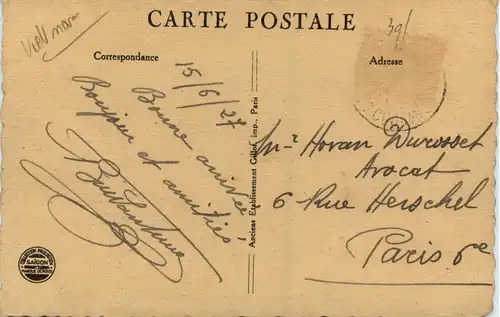 CARTE POSTALE
Viet nam
39/
Correspondance
Adresse
15/6/27
Bonne arrivée
Bonjour et amitiés
Anciens Etablissement Gillot, imp., Paris
Mr Horan Durosset
Avocat
6 Rue Herschel
Paris 6e
SAIGON